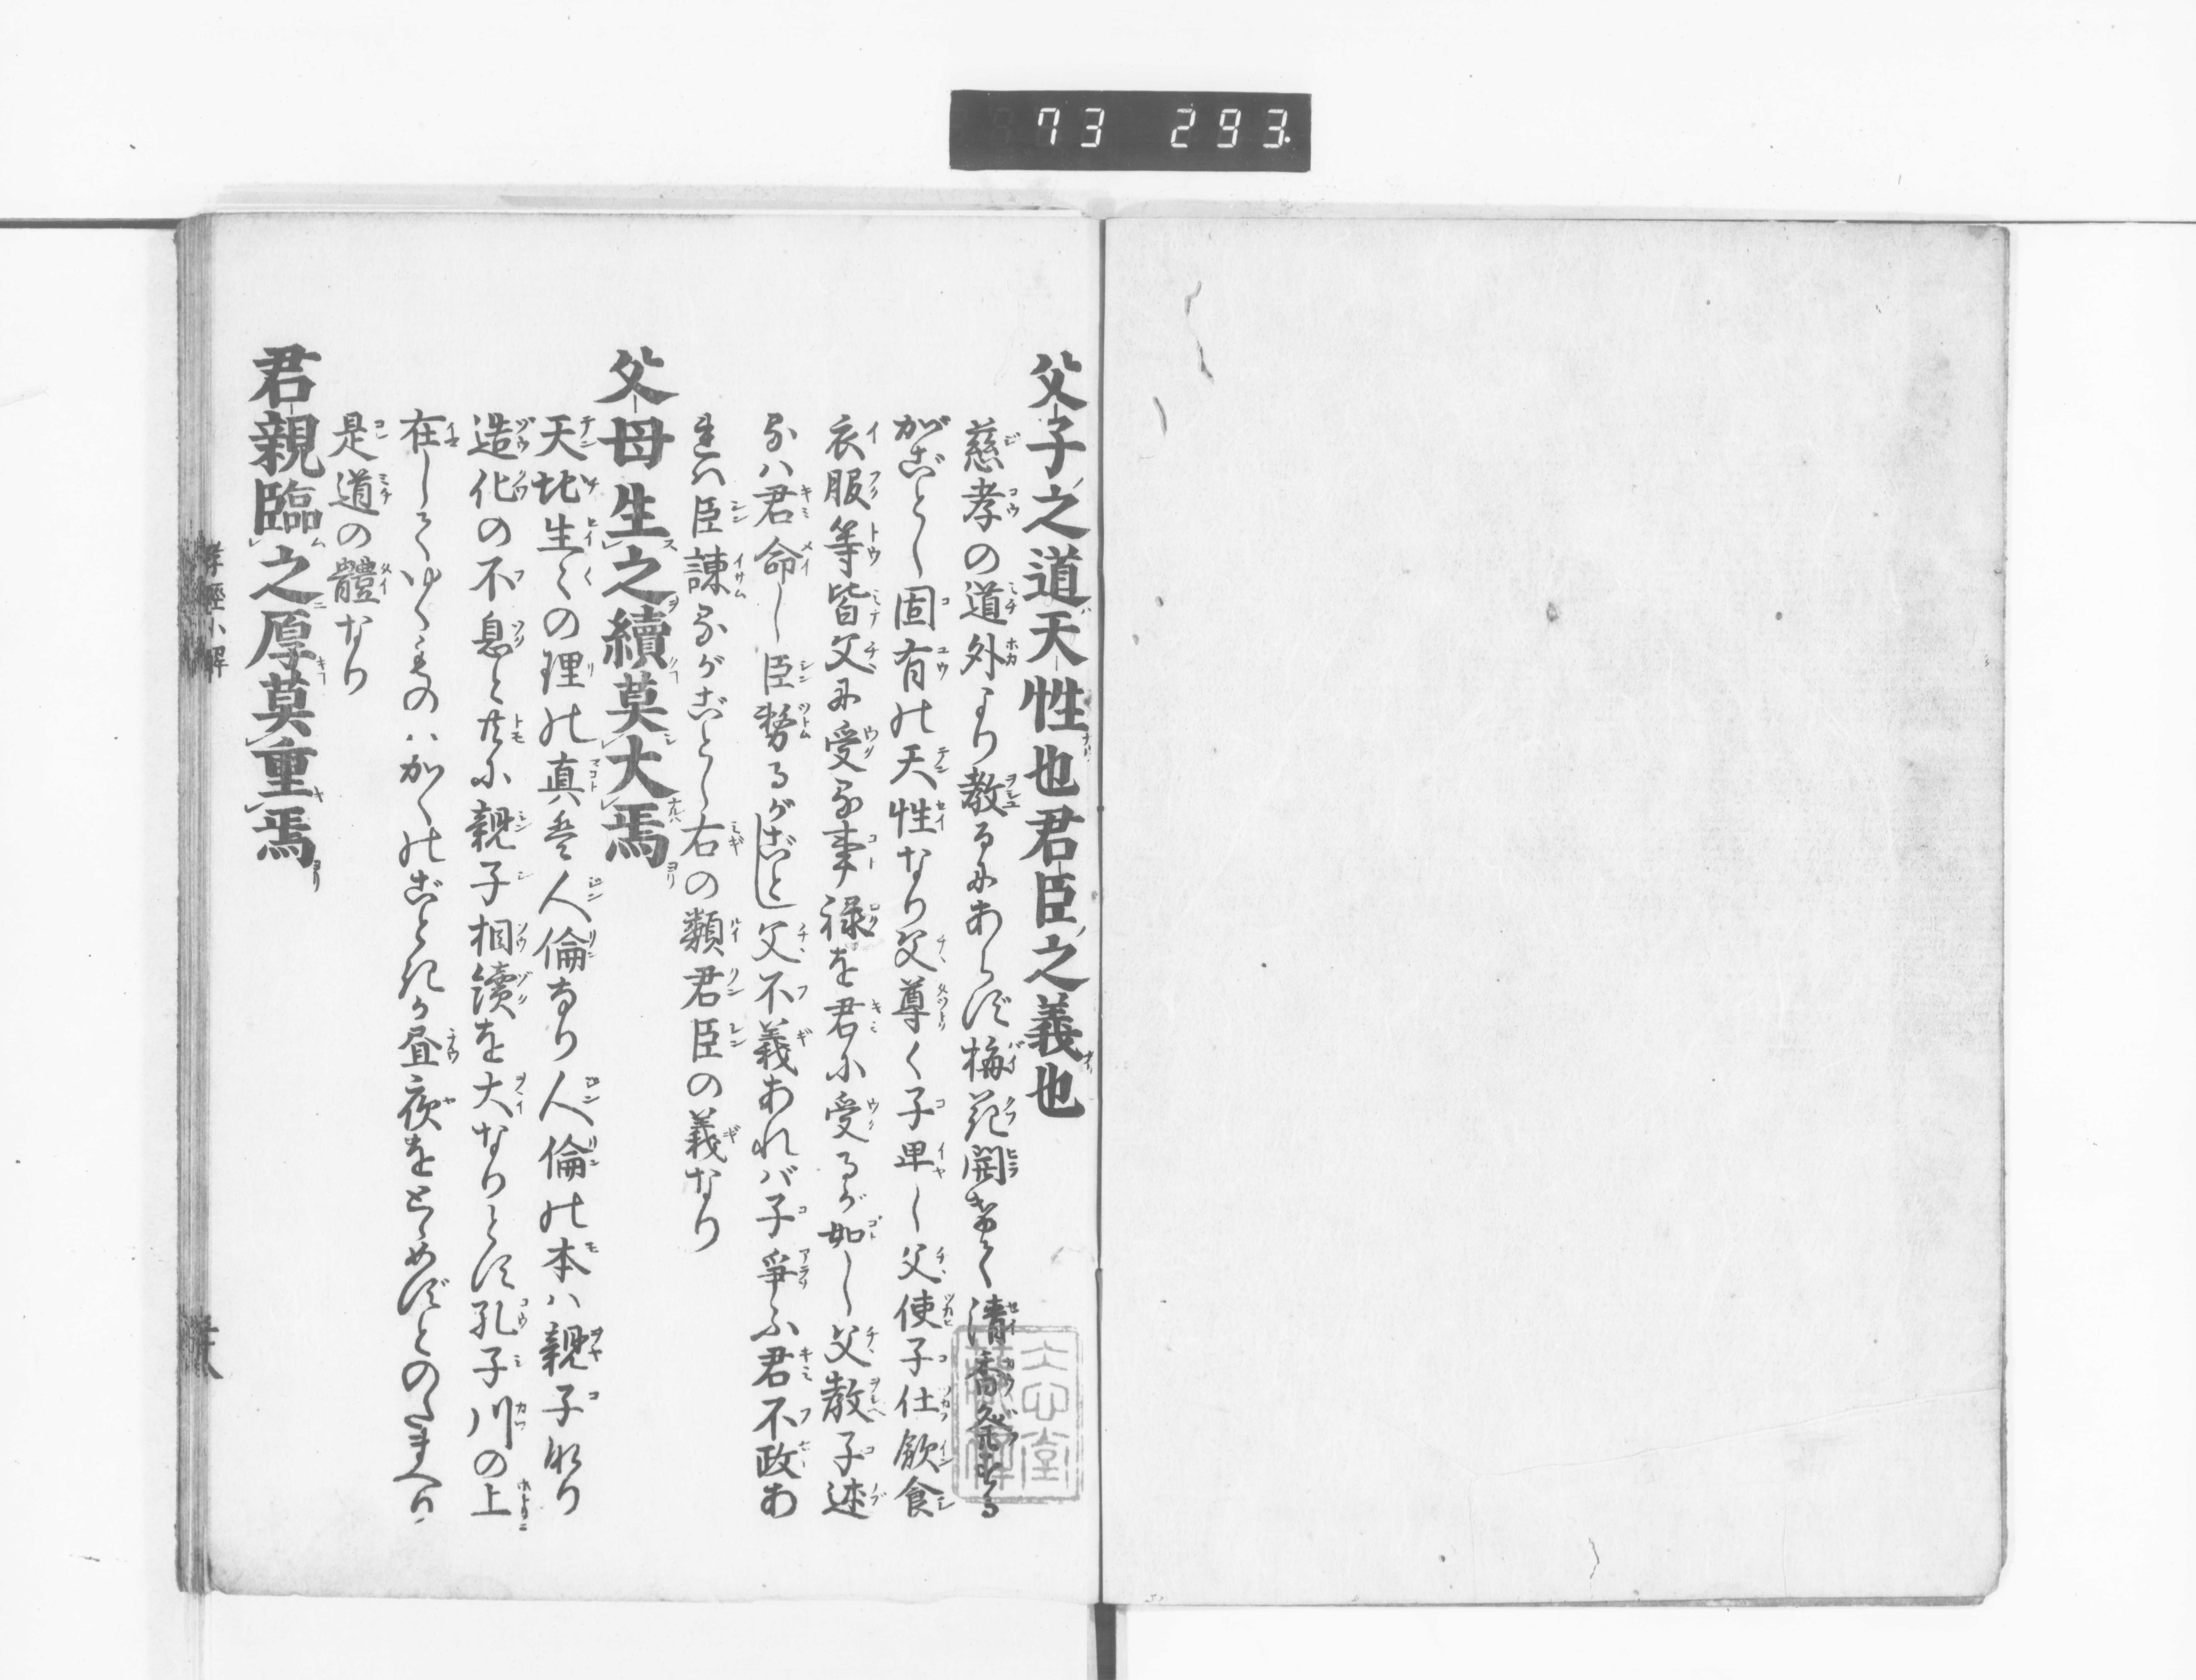 73 293.
父子之道天性也君臣之義也
慈孝の道外より教るにあらず梅花開けて清香発する
がごとし固有の天性なり父尊く子卑し父使子仕飲食
衣服等皆父に受る事禄を君に受るが如し父教子述
るハ君命し臣勢るがごとし父不義あれバ子争ふ君不政あ
れハ臣諫るがごとし右の類君臣の義なり
父母生之續莫大焉
天地生〱の理の真至人倫なり人倫の本ハ親子なり
造化の不息と共に親子相續を大なりとす孔子川の上
在してゆくものハかくのごときか昼夜をとゞめずとのたまへり
是道の體なり
君親臨之厚莫重焉
孝經小解